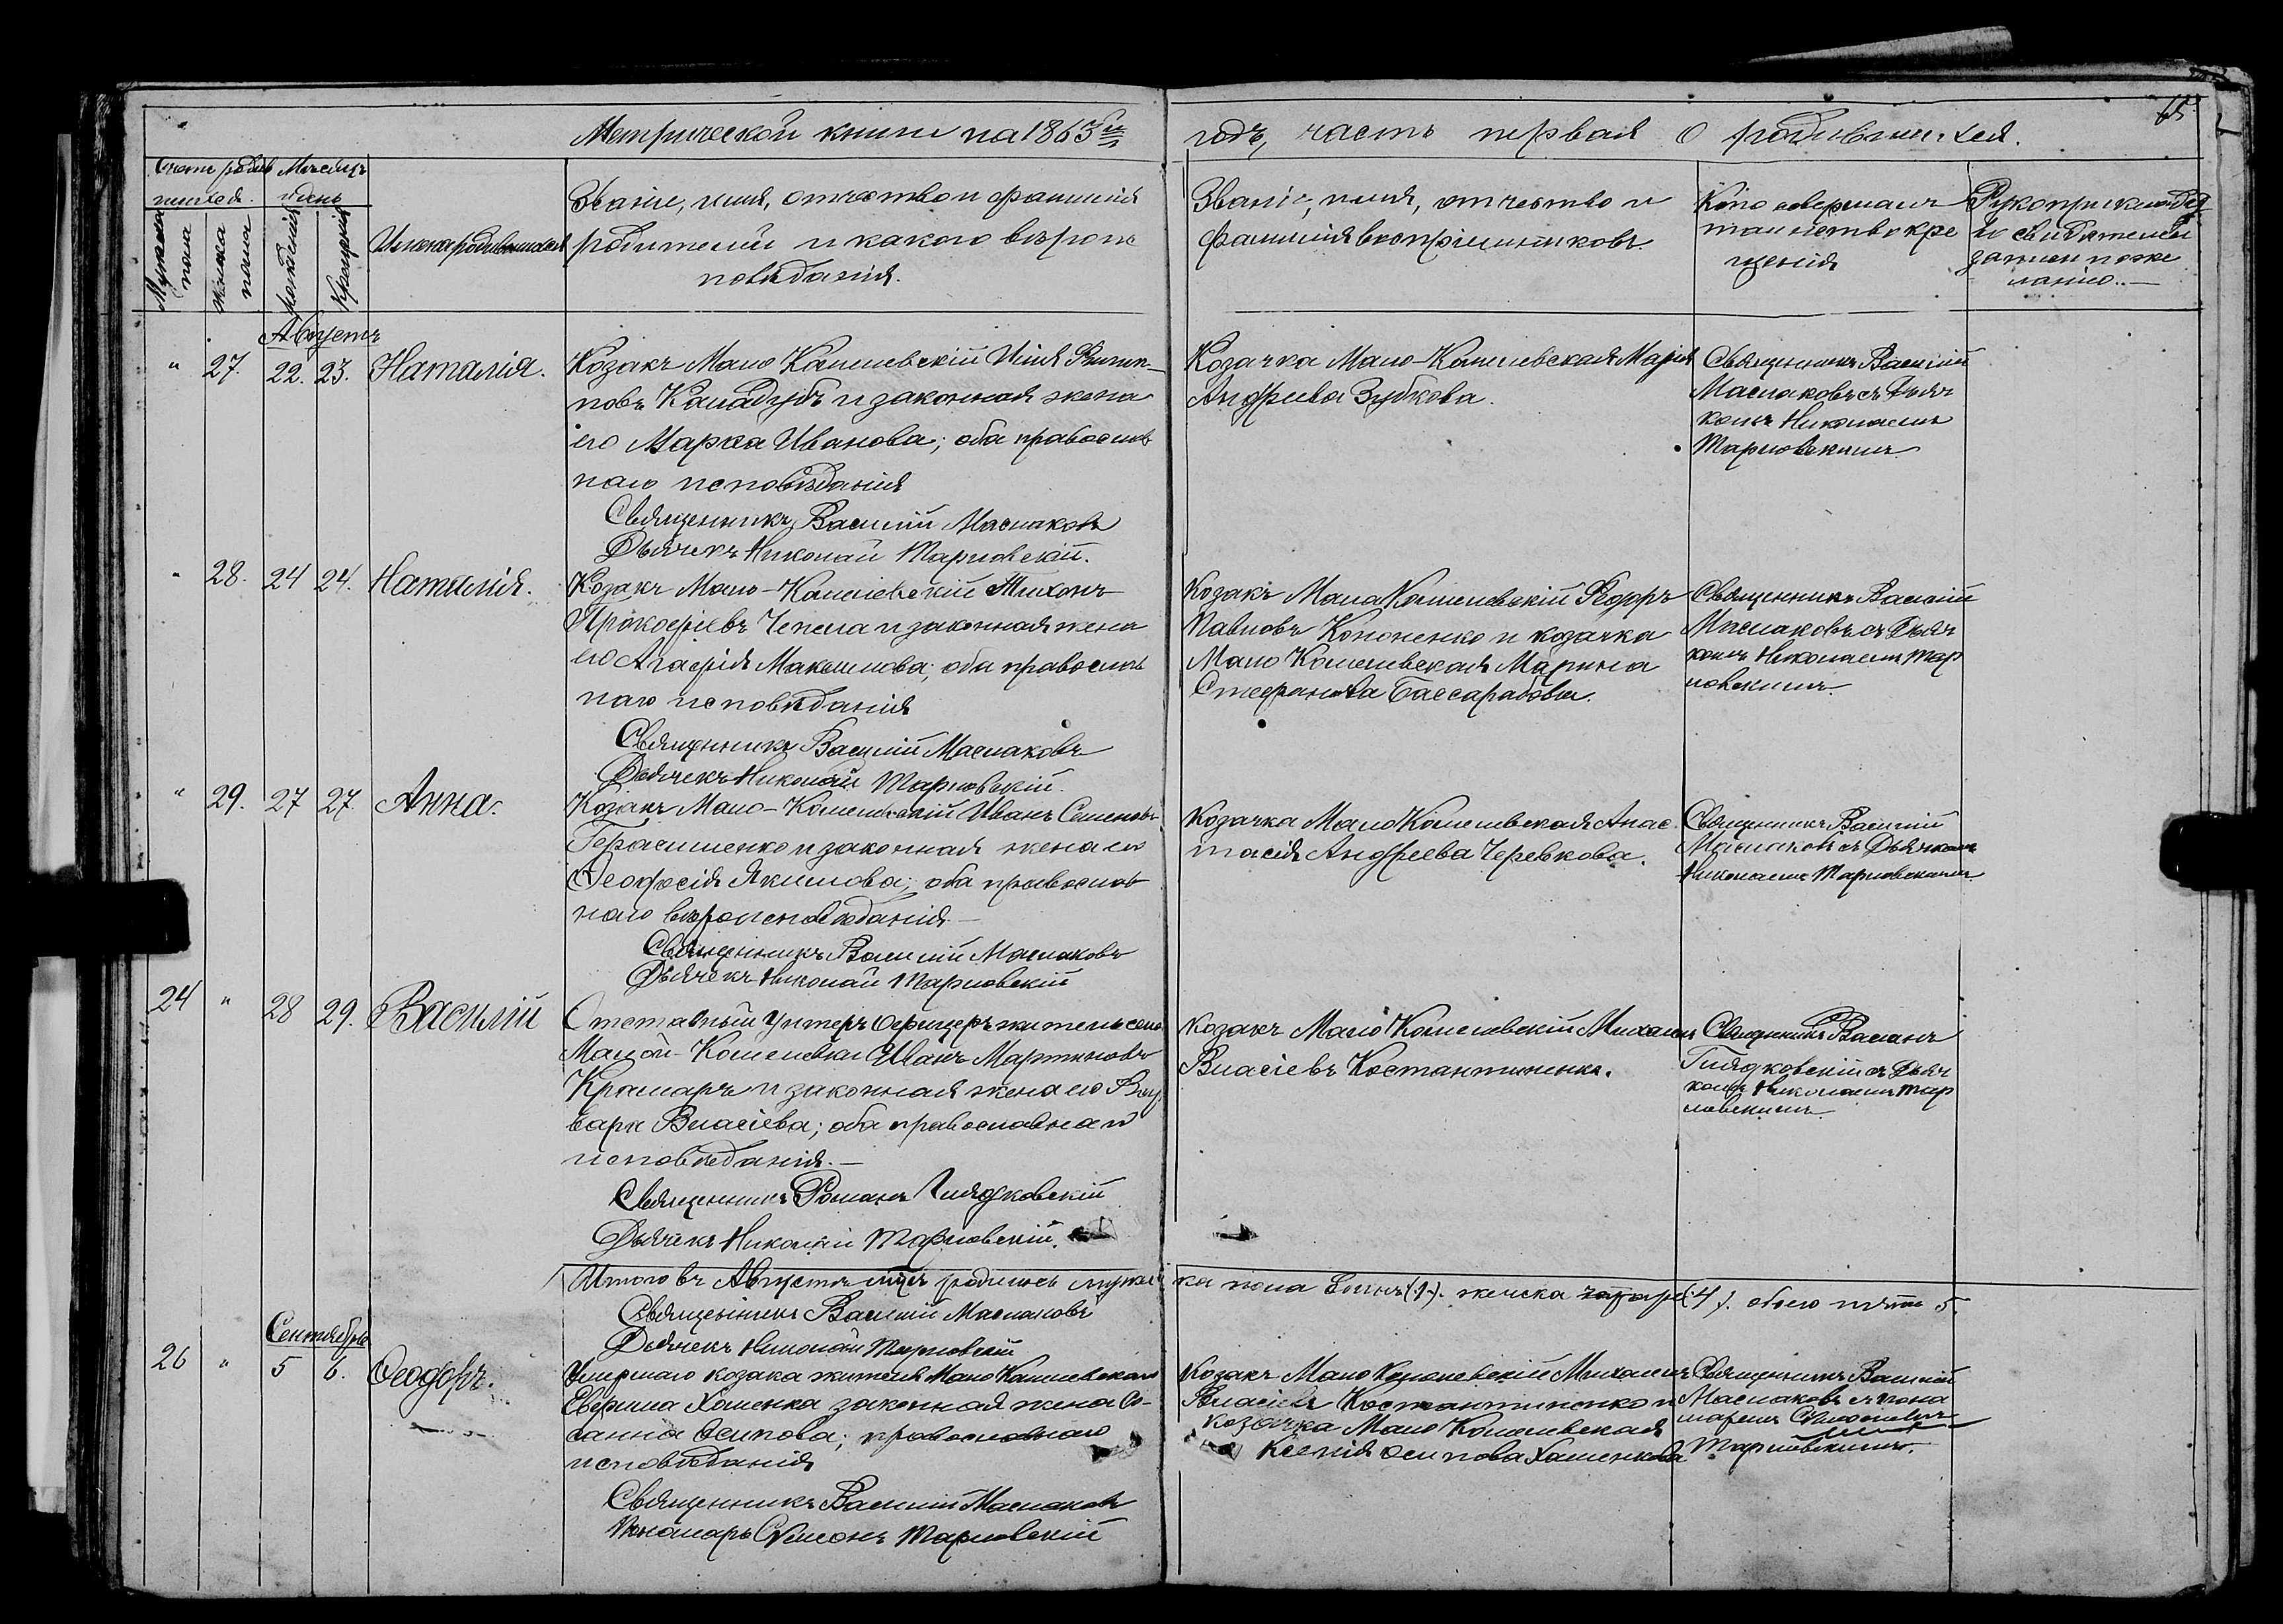 65
Метрической книги на 1863й годъ, часть первая о родившихся.
Счетъ родив
шихся.
Мѣсяцъ
и день
Мужеска
пола
Женска
пола
рожденія
Крещенія
Имена родившихся
Званіе, имя, отчество и фамилія
родителей и какого вѣроис
повѣданія.
Званіе, имя, отчество и
фамилія воспріемниковъ
Кто совершалъ
таинство кре
щенія
Рукоприкладст
во свидѣтелей
записи по же
ланію.
Августъ
" 27. 22. 23. Наталія.
Козакъ Мало Кошелевскій Илія Филип-
повъ Каладубъ и законная жена
его Марѳа Иванова; оба православ
наго исповѣданія
Священникъ Василій Маслаковъ
Дьячекъ Николай Тарловскій.
Козачка Мало-Кошелевская Марія
Андреева Зубкова.
Священникъ Василій
Маслаковъ съ дьяч
комъ Николаемъ
Тарловскимъ
" 28. 24 24. Наталія.
Козакъ Мало-Кошелевскій Тихонъ
Прокофіевъ Чепела и законная жена
его Агафія Максимова; оба православ
наго исповѣданія
Священникъ Василій Маслаковъ
Дьячекъ Николай Тарловскій.
Козакъ Мало Кошелевскій Ѳеодоръ
Павловъ Кононенко и козачка
Мало Кошелевская Марина
Стефанова Бассарабова.
Священникъ Василій
Маслаковъ съ Дьяч
комъ Николаемъ Тар
ловскимъ.
" 29. 27 27. Анна.
Козакъ Мало-Кошелевскій Иванъ Семеновъ
Герасименко и законная жена его
Ѳеодосія Якимова; оба православ
наго вѣроисповѣданія
Священникъ Василій Маслаковъ
Дьячекъ Николай Тарловскій
Козачка Мало Кошелевская Анас
тасія Андреева Черевкова.
Священникъ Василій
Маслаковъ съ Дьячкомъ
Николаемъ Тарловскимъ
24 " 28 29. Василій
Отставный Унтеръ Офицеръ житель села
Малой-Кошелевки Иванъ Мартыновъ
Крамаръ и законная жена его Вар
вара Власіева; оба православнаго
исповѣданія.
Священникъ Романъ Глядковскій
Дьячекъ Николай Тарловскій.
Козакъ Мало Кошелевскій Михаилъ
Власіевъ Костантиненко.
Священникъ Романъ
Глядковскій съ Дьяч
комъ Николаемъ Тар
ловскимъ.
Итого въ Августѣ мцѣ родилось мужес ка пола Одинъ (1). женска четыре (4). обоего пять 5.
Священникъ Василій Маслаковъ
Дьячекъ Николай Тарловскій
Сентябрь
26 " 5 6. Ѳеодоръ.
Умершаго козака жителя Мало Кошелевскаго
Хоменка законная жена
Осипова; православнаго
исповѣданія
Священникъ Василій Маслаковъ
Пономарь Симеонъ Тарловскій
Козакъ Мало Кошелевскій Михаилъ
Власіевъ Костантиненко и
козачка Мало Кошелевская
Ксенія Осипова Хоменкова
Священникъ Василій
Маслаковъ съ поно
маремъ Симеономъ
Тарловскимъ.